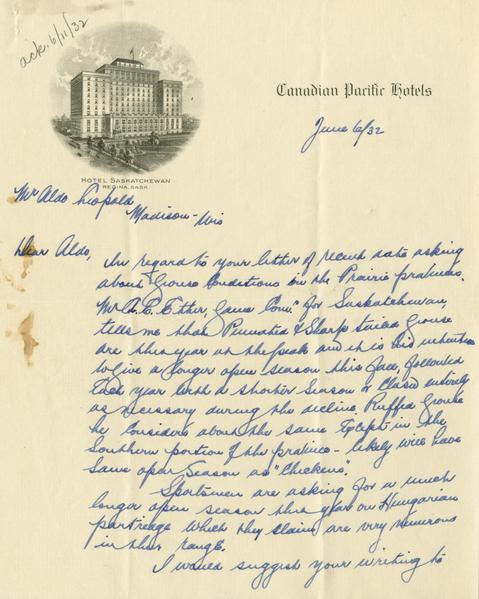 ack. 6/11/32
Canadian Pacific Hotels
June 6/32
HOTEL SASKATCHEWAN
REGINA, SASK.
Mr Aldo Leopold
Madison - Wis
Dear Aldo,
In regard to your letter of recent date asking
about Grouse Conditions in the Prairie provinces.
Mr A.E. Etter, Game Com." for Saskatchewan,
tells me that Pinnated & Sharp tailed Grouse
are this year at the peak and it is his intention
to give a longer open season this fall, followed
each year with a shorter Season or Closed entirely
as necessary during the decline. Ruffed Grouse
he Considers about the same Except in the
Southern portion of the province - likely will have
same open Season as "Chickens".
Sportsmen are asking for a much
longer open season this year on Hungarian
partridge which they claim are very numerous
in their range.
I would suggest your writing to